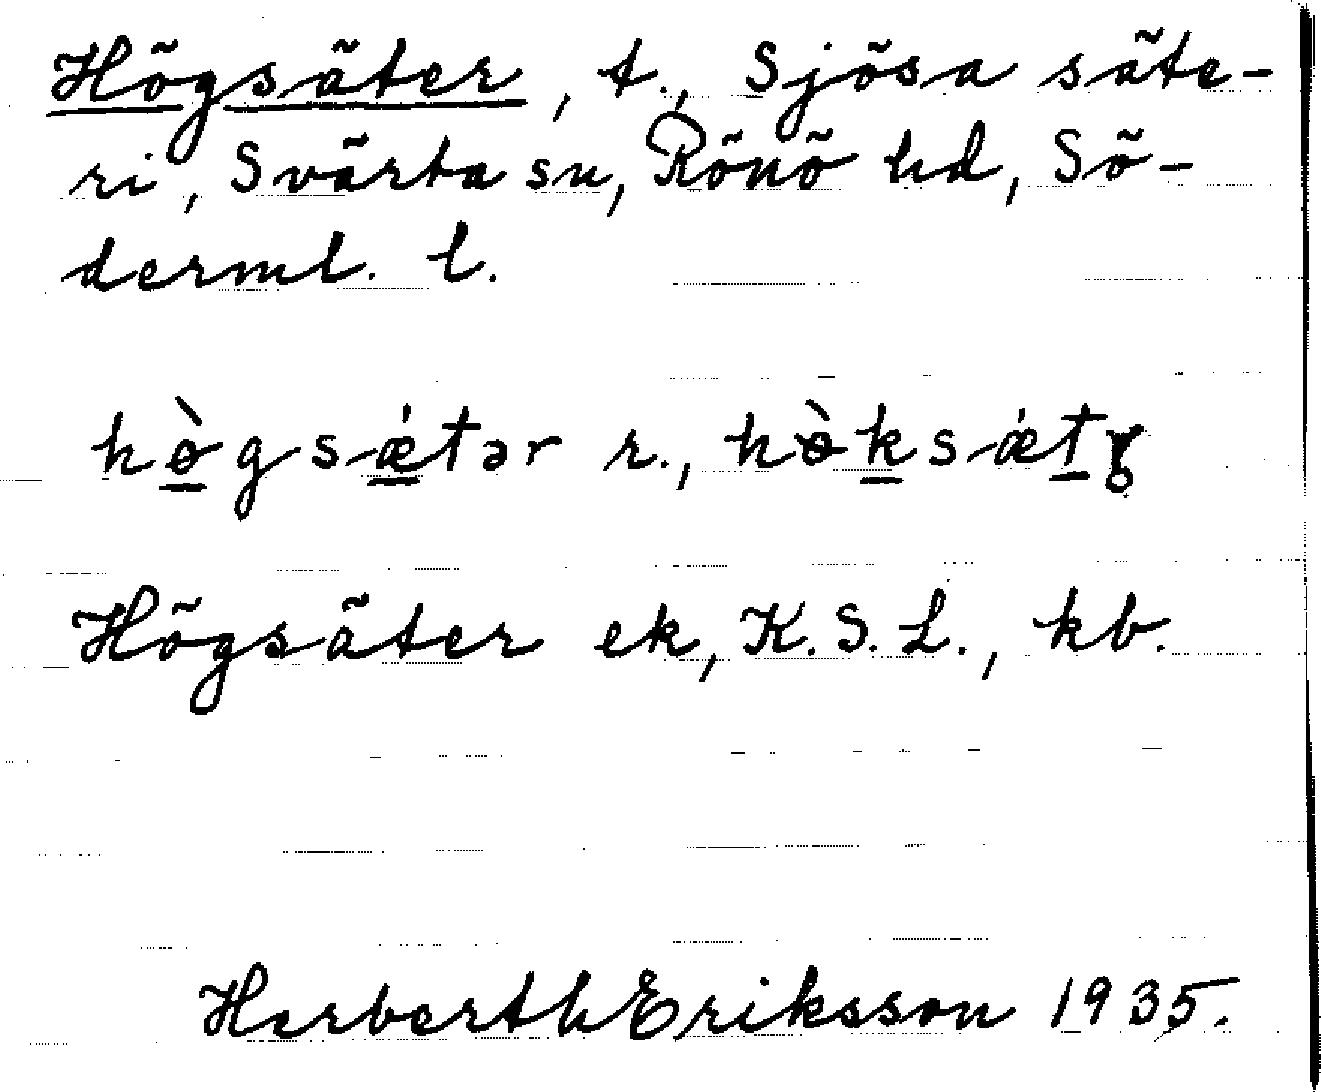 Högsäter, t., Sjösa säte-
ri, Svärta sn, Rönö hd, Sö-
derml. l.
hògsǽtər r., hòksǽtr̥
Högsäter ek, K.S.L., kb.
Herberth Eriksson 1935.